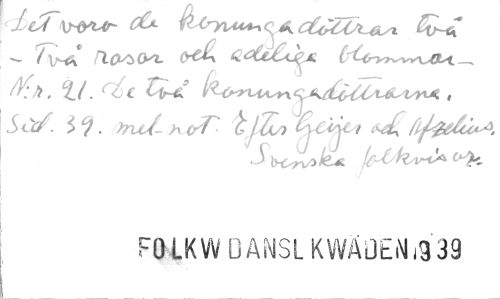 Det voro de konungadöttrar två
- Två rosor och adeliga blommor -
N:r. 21. De två konungadöttrarna.
Sid. 39. mel-not. Efter Geijer och Afzelius.
Svenska folkvisor.
FOLKW DANSLKWÄDEN,939